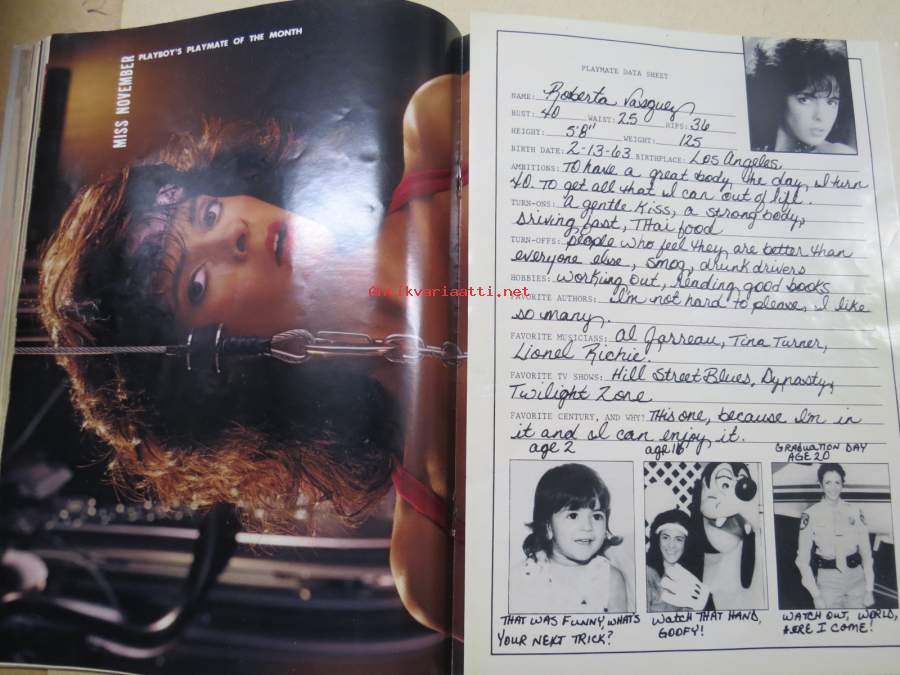 MISS NOVEMBER
PLAYBOY'S PLAYMATE OF THE MONTH
Antikvariaatti.net
PLAYMATE DATA SHEET
NAME: Roberta Vasquez
BUST: 40 WAIST: 25 HIPS: 36
HEIGHT: 5'8" WEIGHT: 125
BIRTH DATE: 2-13-63 BIRTHPLACE: Los Angeles,
AMBITIONS: To have a great body, the day, I turn
40. To get all that I can out of life.
TURN-ONS: a gentle kiss, a strong body,
driving fast, Thai food
TURN-OFFS: people who feel they are better than
everyone else, smog, drunk drivers
HOBBIES: working out, reading good books
FAVORITE AUTHORS: I'm not hard to please, I like
so many.
FAVORITE MUSICIANS: Al Jarreau, Tina Turner,
Lionel Richie.
FAVORITE TV SHOWS: Hill Street Blues, Dynasty,
Twilight Zone
FAVORITE CENTURY, AND WHY? This one, because I'm in
it and I can enjoy it.
age 2
age 16
GRADUATION DAY
AGE 20
THAT WAS FUNNY, WHAT'S
YOUR NEXT TRICK?
WATCH THAT HAND,
GOOFY!
WATCH OUT, WORLD,
HERE I COME!